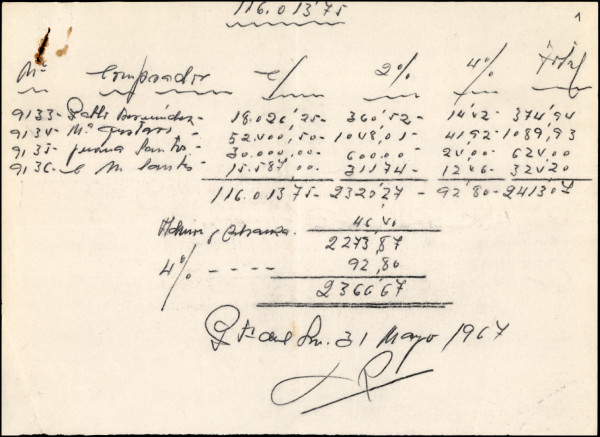 116.013'75
1
Nº Comprador c/ 2% 4% Total
9133- Pablo Bermúdez- 18.026,25- 360,52- 14,42- 374,94
9134- Mª - 52.400,50- 1048,01- 41,92- 1089,93
9135- Juana Santos- 30.000,00- 600,00- 24,00- 624,00
9136- M. Santos- 15.587,00- 311,74- 12,46- 324,20
116.013,75- 2320,27- 92,80- 2413,07
46,40
2273,87
4% ---- 92,80
2366,67
31 Mayo 1967